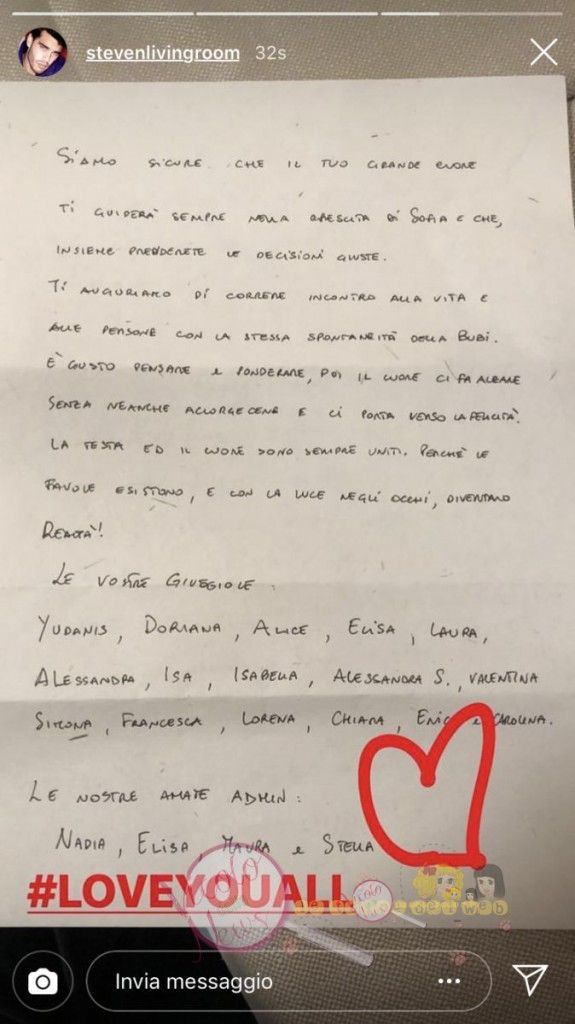 stevenlivingroom 32s
SIAMO SICURE CHE IL TUO GRANDE CUORE
TI GUIDERÀ SEMPRE NELLA CRESCITA DI SOFIA E CHE,
INSIEME PRENDERETE LE DECISIONI GIUSTE.
TI AUGURIAMO DI CORRERE INCONTRO ALLA VITA E
ALLE PERSONE CON LA STESSA SPONTANEITÀ DELLA BUBI.
È GIUSTO PENSARE E PONDERARE, POI IL CUORE CI FA
SENZA NEANCHE E CI PORTA VERSO LA FELICITÀ.
LA TESTA ED IL CUORE SONO SEMPRE UNITI. PERCHÈ LE
FAVOLE ESISTONO, E CON LA LUCE NEGLI OCCHI, DIVENTANO
REALTÀ!
LE VOSTRE GIUGGIOLE.
YUDANIS, DORIANA, ALICE, ELISA, LAURA,
ALESSANDRA, ISA, ISABELLA, ALESSANDRA S., VALENTINA
SIMONA, FRANCESCA, LORENA, CHIARA, E CAROLINA.
LE NOSTRE AMATE ADMIN:
NADIA, ELISA, MAURA E STELLA
#LOVEYOUALL
Invia messaggio